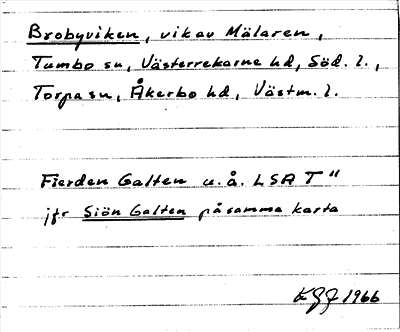 Brobyviken, vik av Mälaren,
Tumbo sn, Västerrekarne hd, Söd. l.,
Torpa sn, Åkerbo hd, Västm. l.
Fierden Galten u.å. LSA T"
jfr Siön Galten på samma karta
KGJ 1966